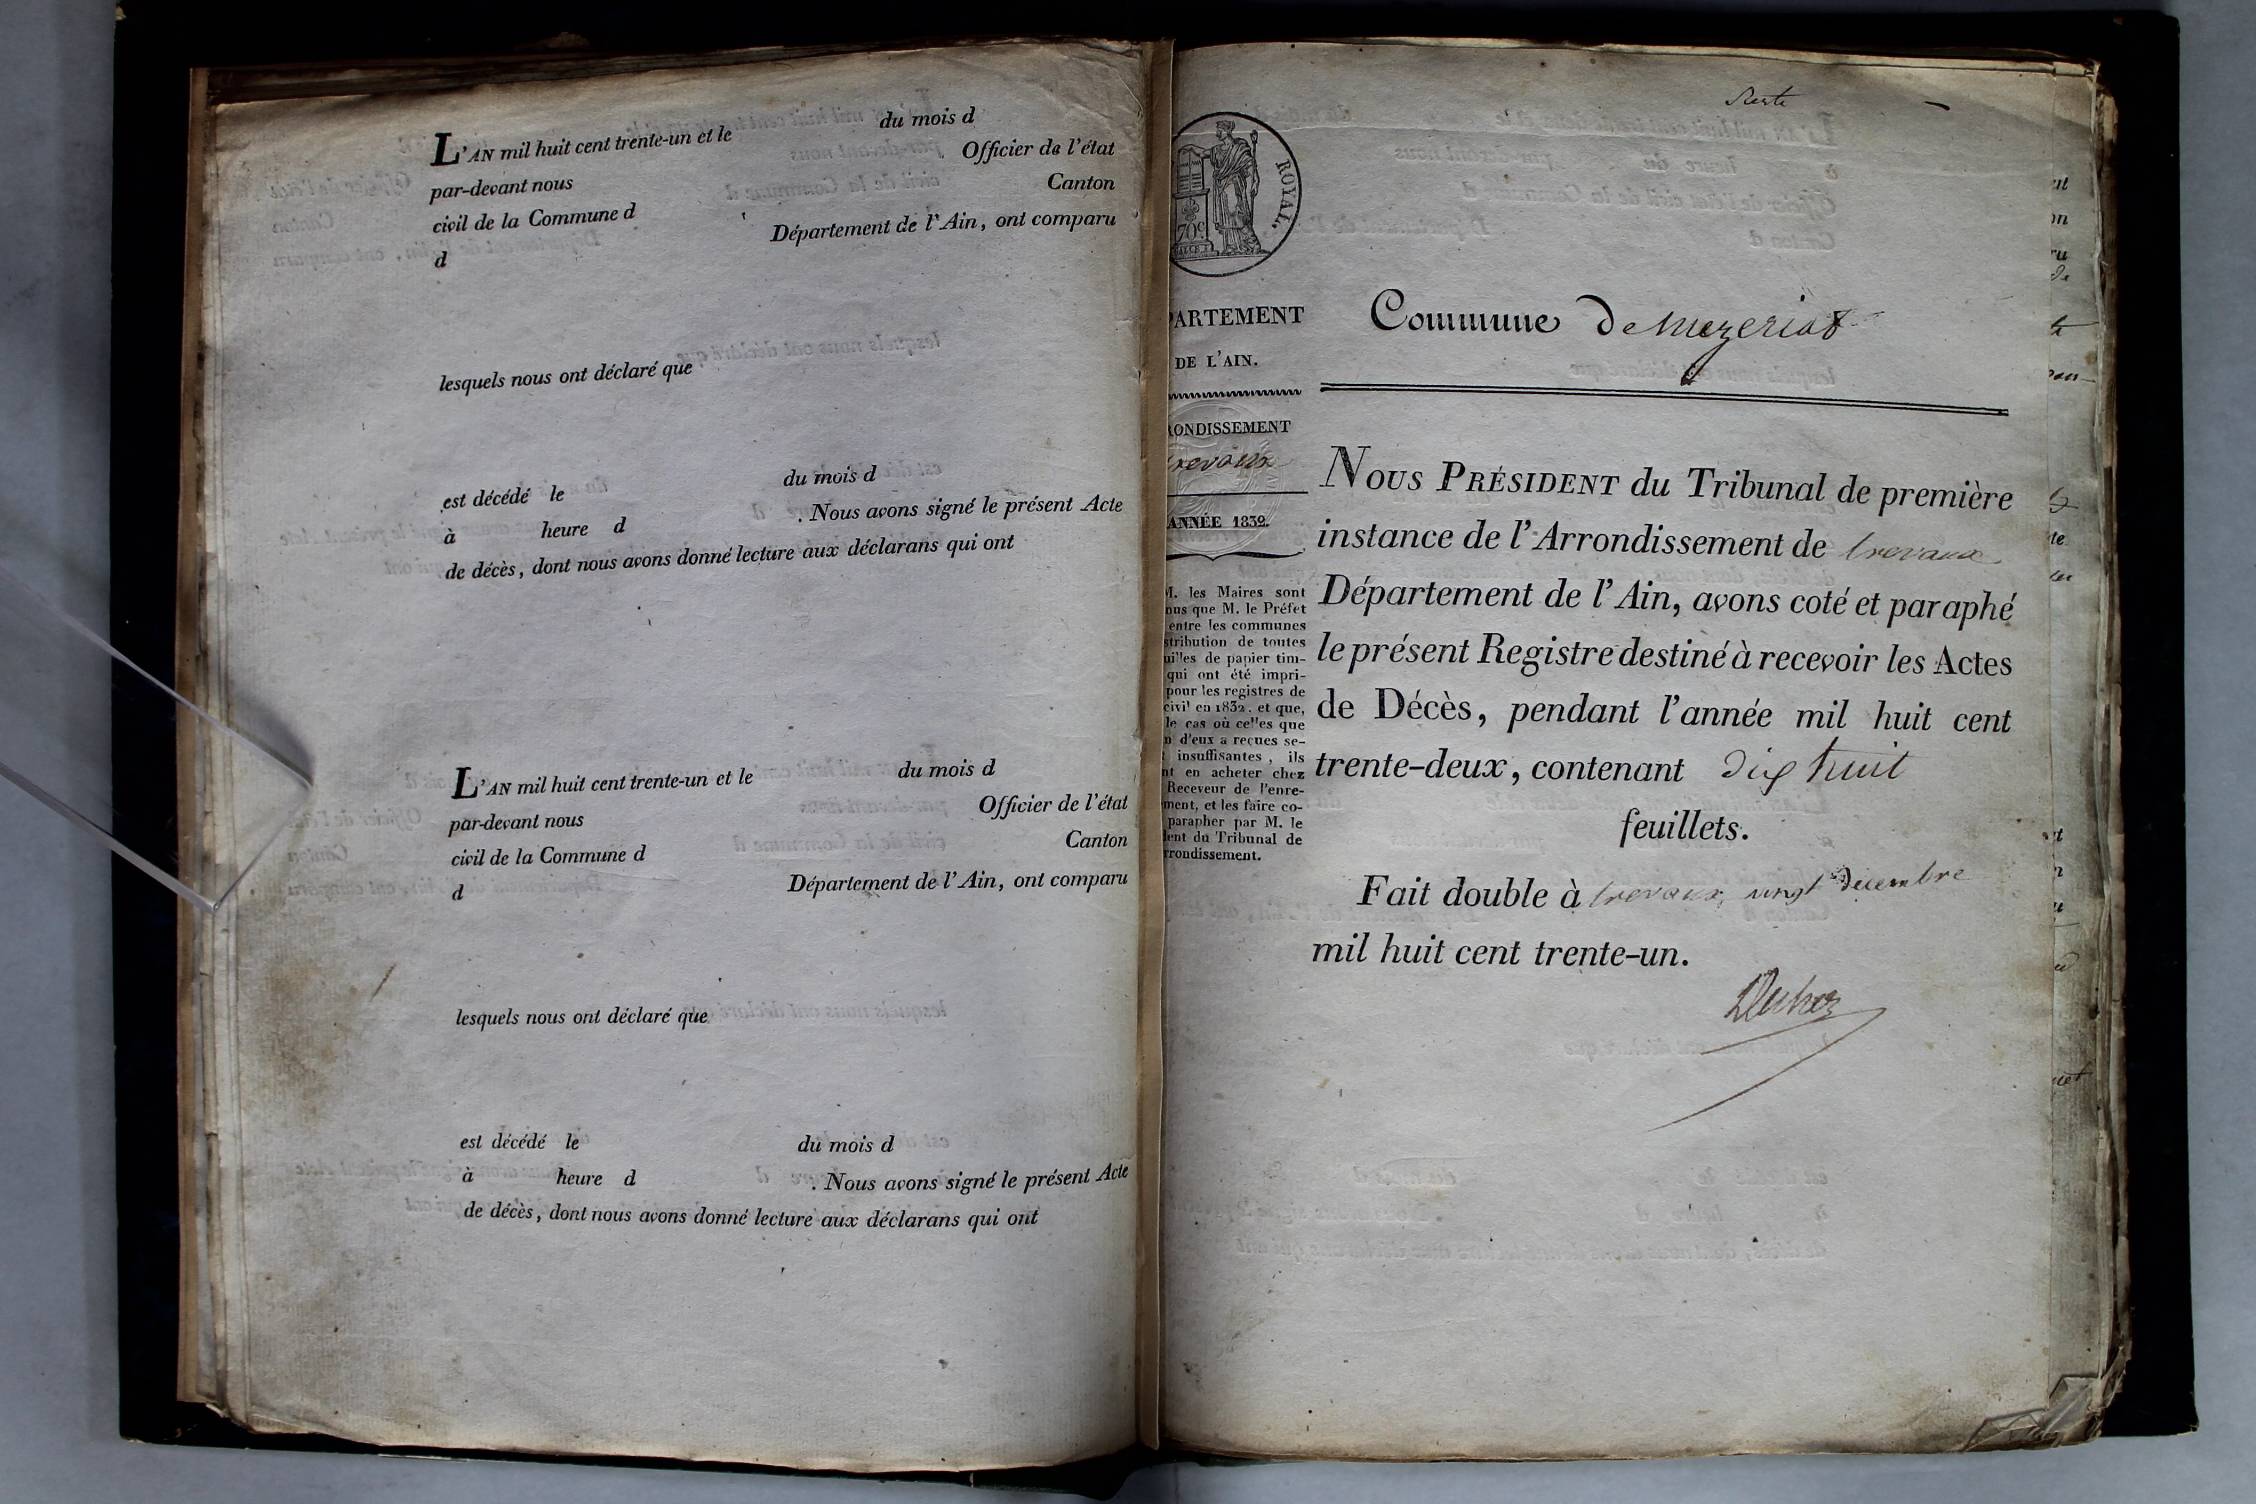 L'AN mil huit cent trente-un et le du mois d
par-devant nous Officier de l'état
civil de la Commune d Canton
d Département de l'Ain, ont comparu
lesquels nous ont déclaré que
est décédé le du mois d
à heure d . Nous avons signé le présent Acte
de décès, dont nous avons donné lecture aux déclarans qui ont
L'AN mil huit cent trente-un et le du mois d
par-devant nous Officier de l'état
civil de la Commune d Canton
d Département de l'Ain, ont comparu
lesquels nous ont déclaré que
est décédé le du mois d
à heure d . Nous avons signé le présent Acte
de décès, dont nous avons donné lecture aux déclarans qui ont
ROYAL.
70c
PARTEMENT
DE L'AIN.
RONDISSEMENT
revoux
ANNÉE 1832.
M. les Maires sont
nus que M. le Préfet
entre les communes
stribution de toutes
uilles de papier tim-
qui ont été impri-
pour les registres de
civil en 1832, et que,
le cas où celles que
n d'eux a reçues se-
t insuffisantes, ils
nt en acheter chez
Receveur de l'enre-
ment, et les faire co-
parapher par M. le
dent du Tribunal de
rrondissement.
Commune De Mezeriat
NOUS PRÉSIDENT du Tribunal de première
instance de l'Arrondissement de trevoux
Département de l'Ain, avons coté et paraphé
le présent Registre destiné à recevoir les Actes
de Décès, pendant l'année mil huit cent
trente-deux, contenant dix huit
feuillets.
Fait double à trevoux, vingt décembre
mil huit cent trente-un.